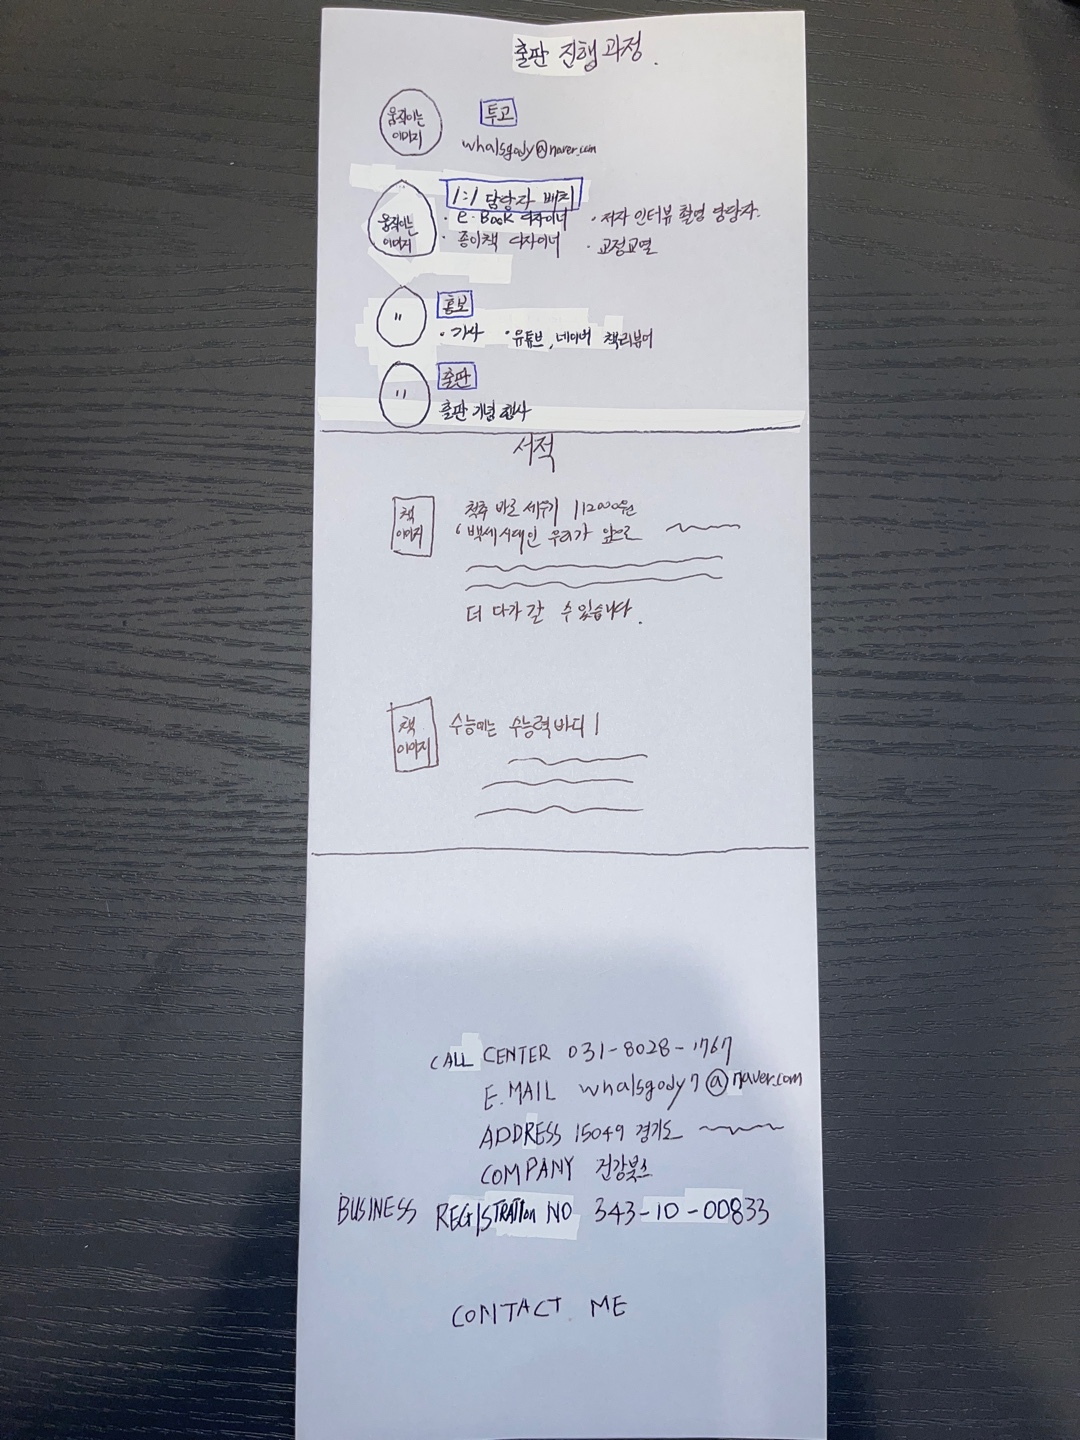 출판 진행과정.
움직이는
이미지
투고
whalsgody@naver.com
움직이는
이미지
1:1 담당자 배치
· e-Book 디자이너 · 저자 인터뷰 촬영 담당자.
· 종이책 디자이너 · 교정교열
"
홍보
· 기사 · 유튜브, 네이버 책리뷰어
"
출판
출판 기념 행사
서적
책
이미지
척추 바로 세우기 | 12000원
'백세시대인 우리가 앞으로
더 다가갈 수 있습니다.
책
이미지
수능에는 수능력바디 |
CALL CENTER 031-8028-1767
E.MAIL whalsgody7@naver.com
ADDRESS 15049 경기도
COMPANY 건강북스
BUSINESS REGISTRATION NO 343-10-00833
CONTACT ME